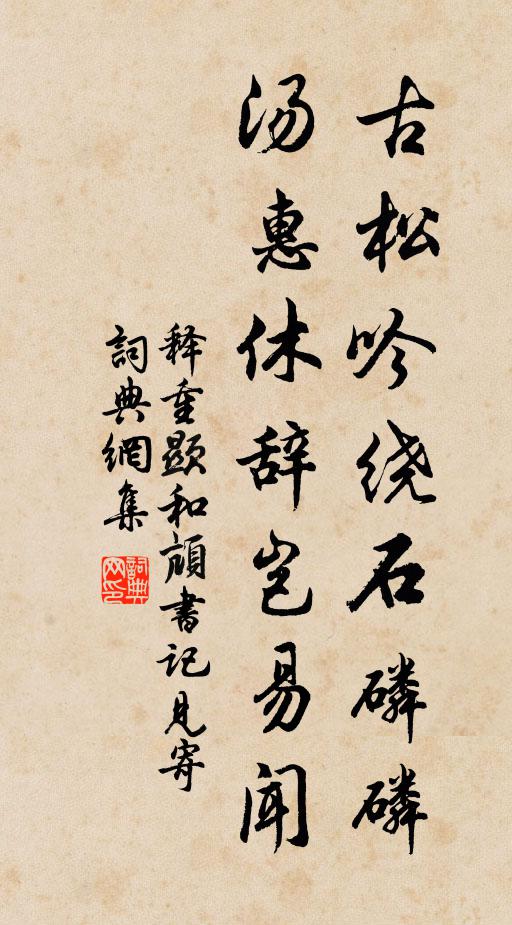 古松吟绕石磷磷
汤惠休辞岂易闻
释重顯和顽書记見寄
詞典網集
詞典网印